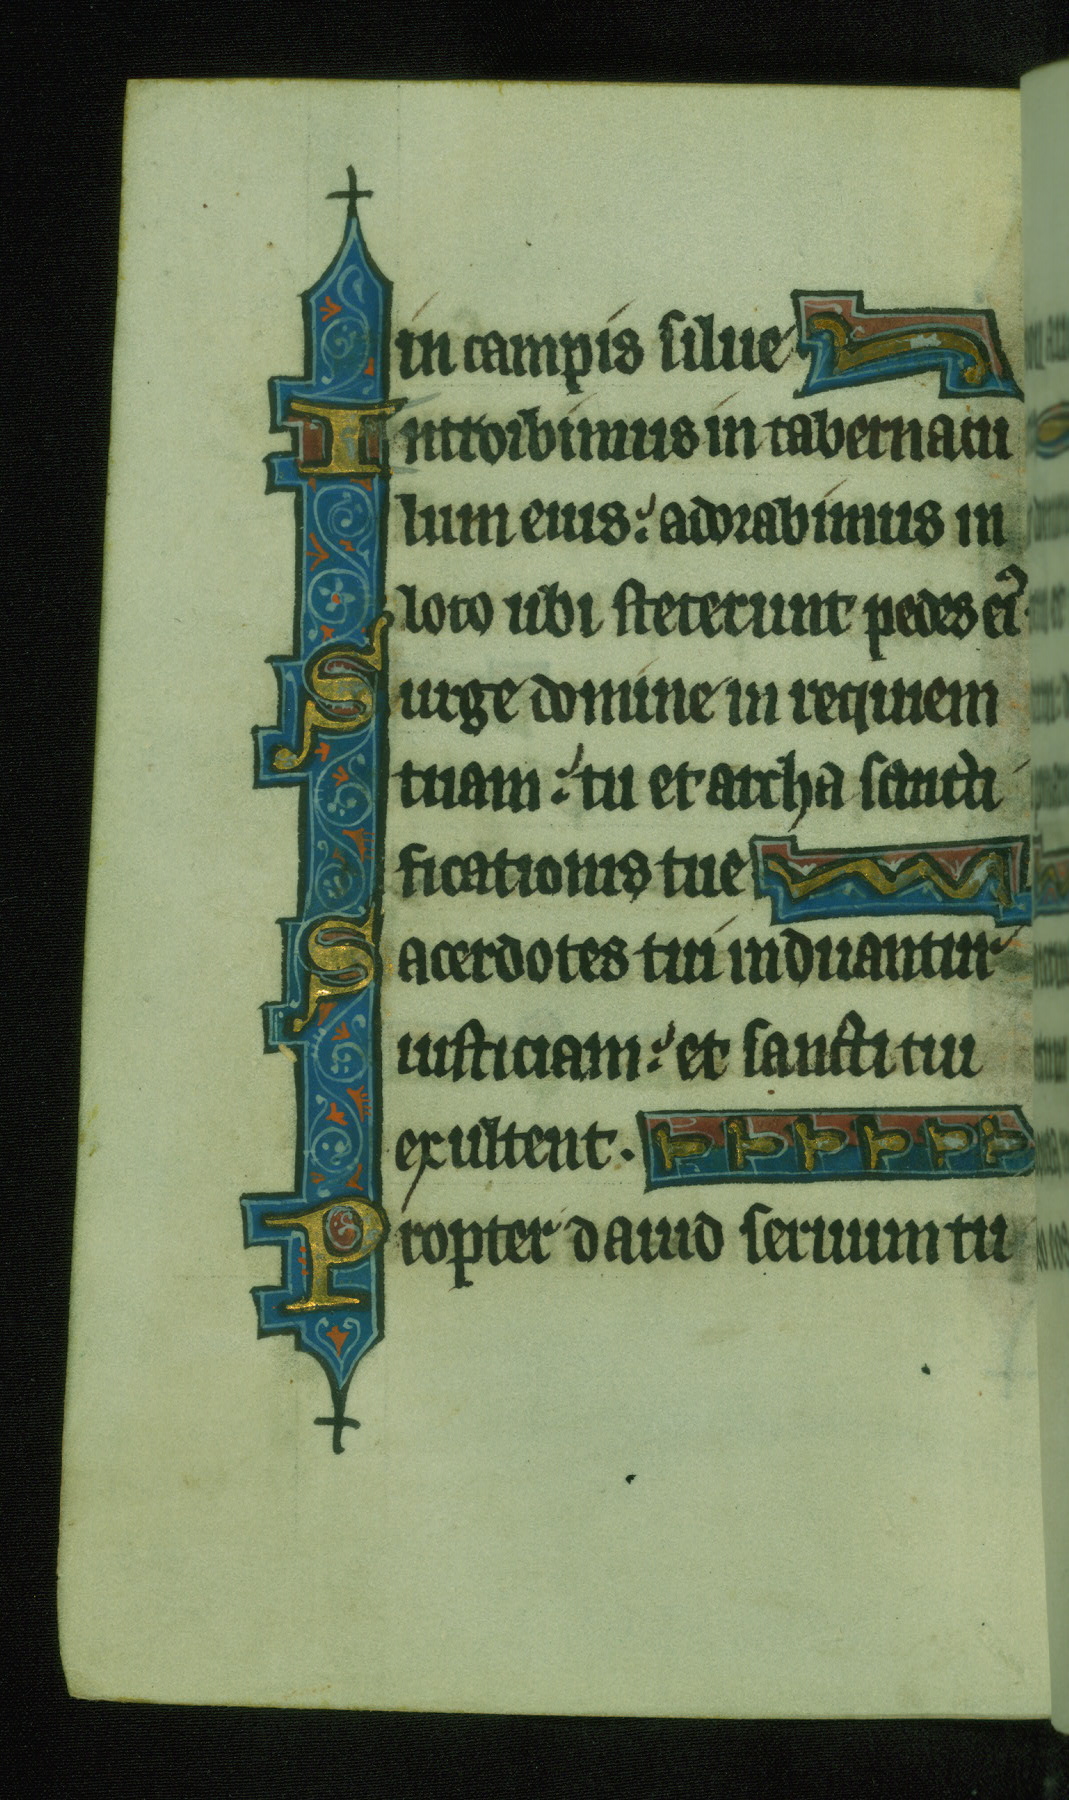 in campis silue
Introibimus in tabernacu
lum eius: adorabimus in
loco ubi steterunt pedes ei⁹.
Surge domine in requiem
tuam: tu et archa sancti
ficationis tue
Sacerdotes tui induantur
iusticiam: et sancti tui
exultent.
Propter dauid seruum tu